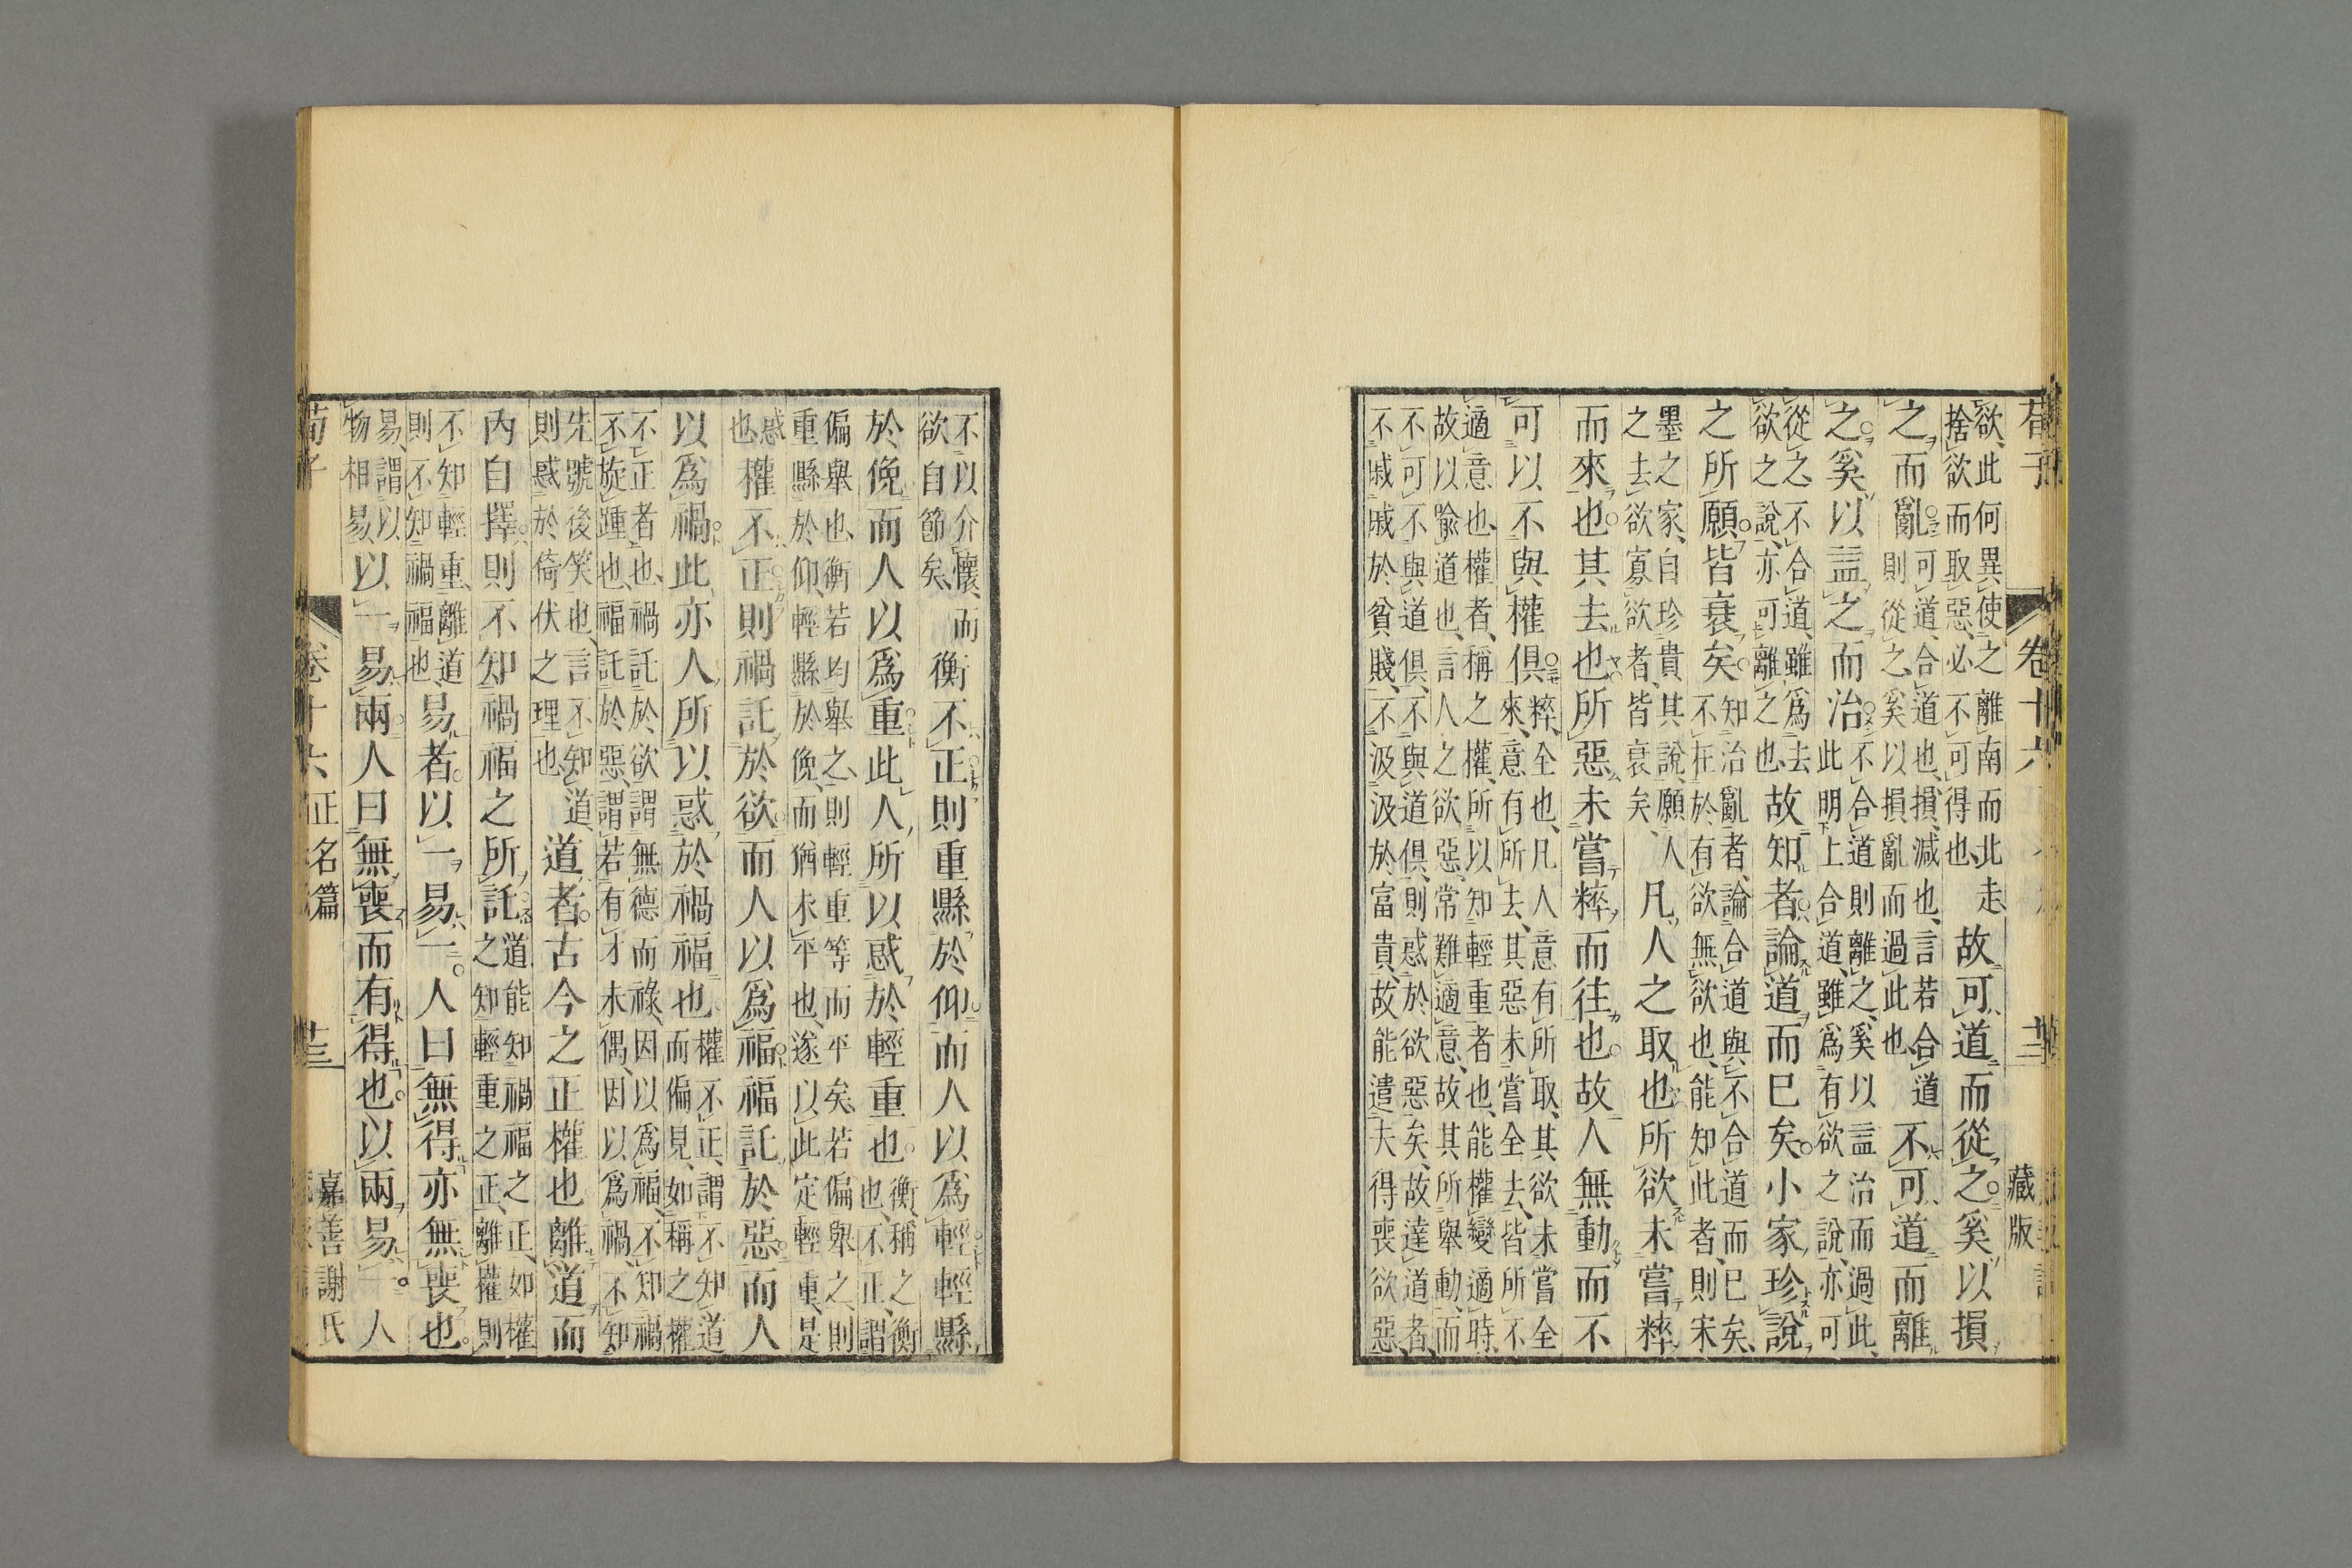 荀子 卷十六 藏版
欲、此何異使之離南而北走、捨欲而取惡、必不可得也、故可道而從之。奚以損
之而亂。可道、合道也、損、減也、言若合道則從之、奚以損亂而過此也、不可道而離
之。奚以益之而治。不合道則離之、奚以益治而過此、此明上合道、雖爲有欲之說、亦可
從之、不合道、雖爲去欲之說、亦可離之也、故知者論道而已矣。小家珍說
之所願皆衰矣。知治亂者、論合道與不合道而已矣、不在於有欲無欲也、能知此者、則宋
墨之家、自珍貴其說、願人之去欲寡欲者、皆衰矣、凡人之取也所欲未嘗粹
而來也。其去也所惡未嘗粹而往也。故人無動而不
可以不與權俱。粹、全也、凡人意有所取、其欲未嘗全來、意有所去、其惡未嘗全去、皆所不
適意也、權者、稱之權、所以知輕重者也、能權變適時、故以喩道也、言人之欲惡、常難適意、故其所舉動、而
不可不與道俱、不與道俱、則惑於欲惡矣、故達道者、不戚戚於貧賤、不汲汲於富貴、故能遣夫得喪欲惡、
不以介懷、而欲自節矣、衡不正則重縣於仰而人以爲輕輕縣
於俛而人以爲重此人所以惑於輕重也。衡、稱之衡也、不正、謂
偏舉也、衡若均舉之、則輕重等而平矣、若偏舉之、則重縣於仰、輕縣於俛、而猶未平也、遂以此定輕重、是
惑也權不正則禍託於欲而人以爲福福託於惡而人
以爲禍此亦人所以惑於禍福也。權不正、謂不知道而偏見、如稱之權
不正者也、禍託於欲、謂無德而祿、因以爲福、不知禍不旋踵也、福託於惡、謂若有才未偶、因以爲禍、不知
先號後笑也、言不知道、則惑於倚伏之理也、道者古今之正權也離道而
內自擇則不知禍福之所託。道能知禍福之正、如權之知輕重之正、離權則
不知輕重、離道則不知禍福也、易者。以一易一。人曰無得亦無喪也。
易、謂以物相易、以一易兩人曰無喪而有得也。以兩易一。人
荀子 卷十六 正名篇 嘉善謝氏